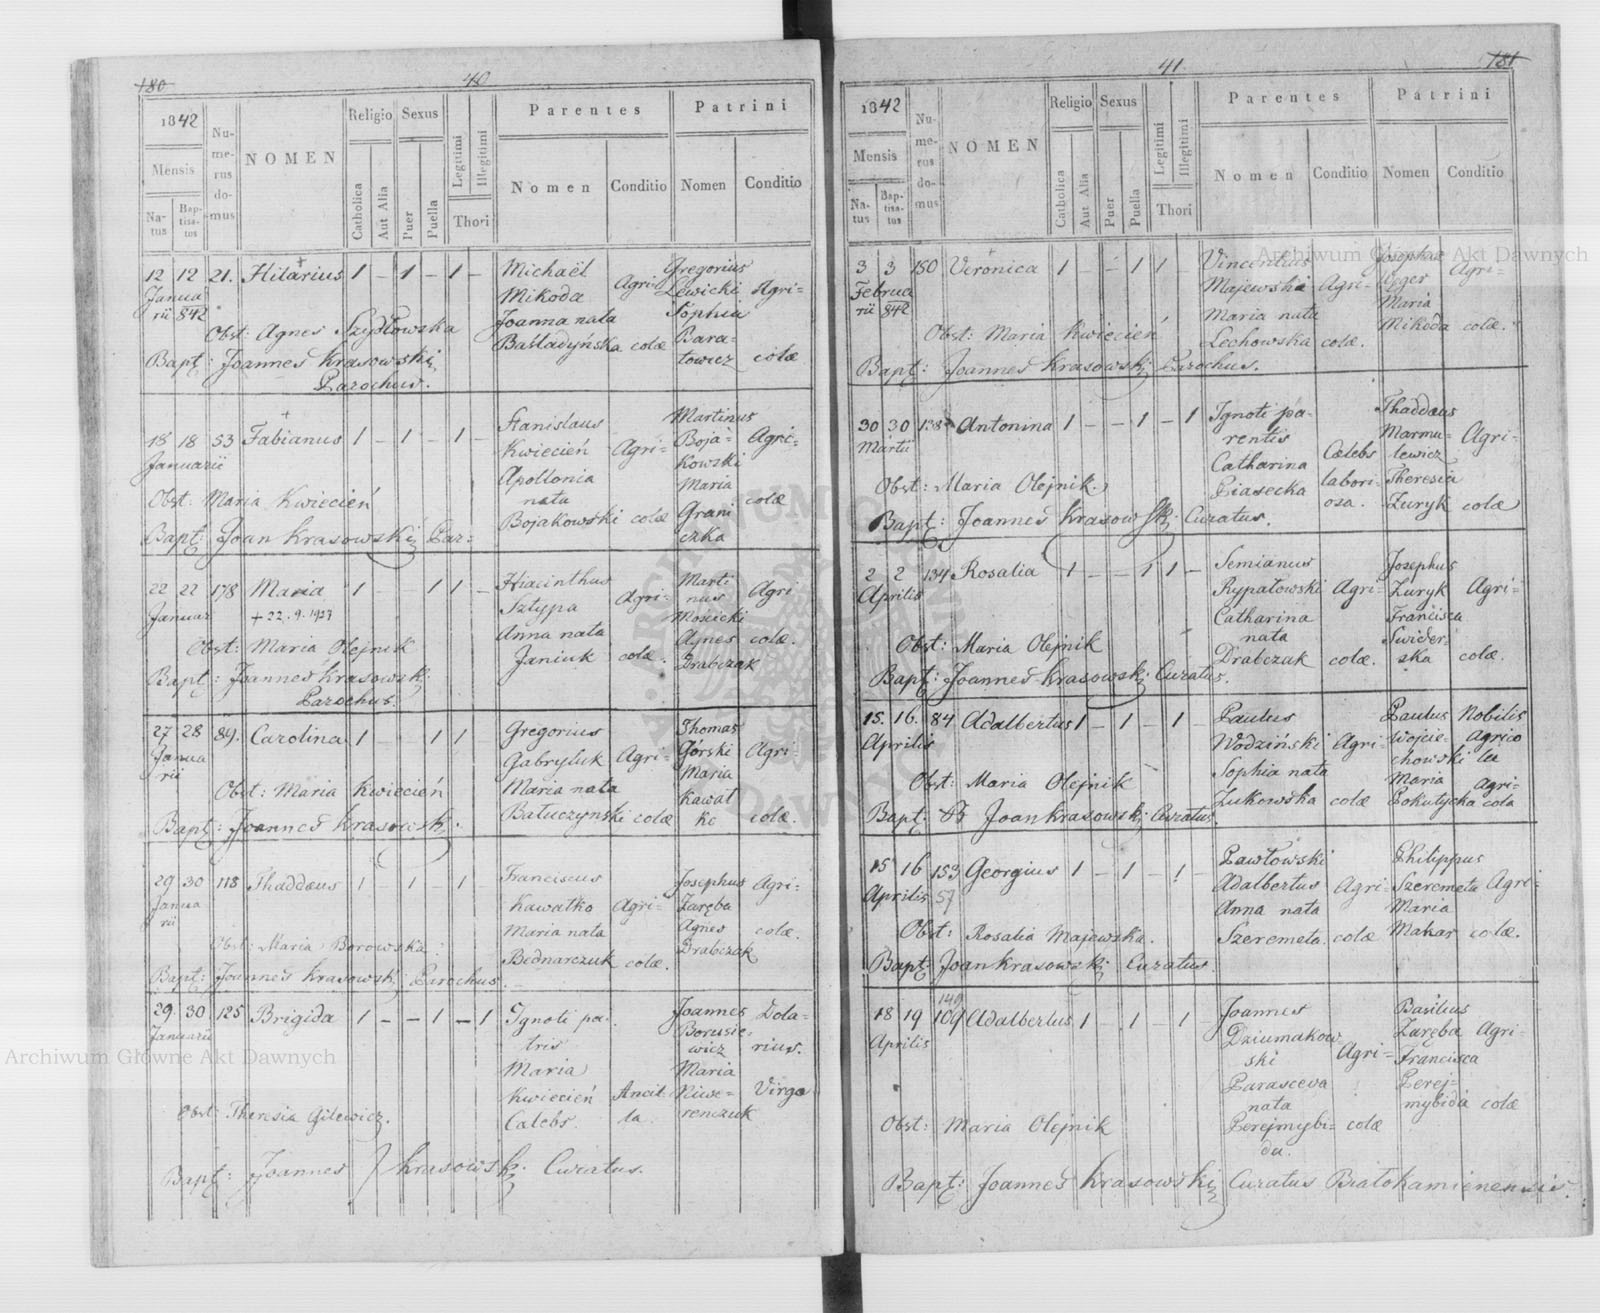 180
40
1842
Mensis
Na-
tus
Bap-
tisa-
tus
Nu-
me-
rus
do-
mus
NOMEN
Religio
Catholica
Aut Alia
Sexus
Puer
Puella
Legitimi
Illegitimi
Thori
Parentes
Nomen
Conditio
Patrini
Nomen
Conditio
12 12 21. Hilarius 1 – 1 – 1 –
Janua
rii 842
Michaël
Mikoda
Joanna nata
Baśladyńska
Agri-
colæ
Gregorius
Lewicki
Sophia
Bara-
towicz
Agri-
colæ
Obst: Agnes Szydłowska
Bapt: Joannes Krasowski
Parochus.
18 18 53 Fabianus 1 – 1 – 1 –
Januarii
Stanislaus
Kwiecień
Apollonia
nata
Bojakowski
Agri-
colæ
Martinus
Boja-
kowski
Maria
Grani
czka
Agri-
colæ
Obst. Maria Kwiecień
Bapt: Joan Krasowski Par-
22 22 178 Maria 1 – – 1 1 –
Januar
+ 22.9.1927
Hiacinthus
Sztypa
Anna nata
Janiuk
Agri-
colæ.
Marti
nus
Mościcki
Agnes
Drabczak
Agri
colæ.
Obst: Maria Olejnik
Bapt: Joannes Krasowski
Parochus.
27 28 89. Carolina 1 – – 1 1
Janua
rii
Gregorius
Gabryluk
Maria nata
Batuczynski
Agri-
colæ
Thomas
Górski
Maria
Kawat
ko
Agri-
colæ.
Obst: Maria Kwiecień
Bapt: Joannes Krasowski
29 30 118 Thaddæus 1 – 1 – 1 –
Janua
rii
Franciscus
Kawatko
Maria nata
Bednarczuk
Agri-
colæ.
Josephus
Zaręba
Agnes
Drabczak
Agri-
colæ.
Obst: Maria Borowska.
Bapt: Joannes Krasowski Parochus.
29. 30 125 Brigida 1 – – 1 – 1
Januarii
Ignoti pa-
tris
Maria
Kwiecień
Cælebs.
Ancil-
la.
Joannes
Borusie-
wicz
Maria
Niwe-
renczuk
Dola-
rius.
Virgo
Obst: Theresia Gilewicz.
Bapt: Joannes Krasowski Curatus.
41.
181
1842
Mensis
Na-
tus
Bap-
tisa-
tus
Nu-
me-
rus
do-
mus
NOMEN
Religio
Catholica
Aut Alia
Sexus
Puer
Puella
Legitimi
Illegitimi
Thori
Parentes
Nomen
Conditio
Patrini
Nomen
Conditio
3 3 150 Veronica 1 – – 1 1 –
Februa
rii 842
Vincentius
Majewski
Maria nata
Lechowska
Agri-
colæ.
Josephus
Maria
Mikoda
Agri-
colæ.
Obst: Maria Kwiecień
Bapt: Joannes Krasowski Parochus.
30 30 138 Antonina 1 – – 1 – 1
Martii
Ignoti pa-
rentis
Catharina
Piasecka
Cælebs
labori-
osa.
Thaddæus
Marmu-
lewicz
Theresia
Zuryk
Agri-
colæ
Obst: Maria Olejnik.
Bapt: Joannes Krasowski Curatus.
2 2 134 Rosalia 1 – – 1 1 –
Aprilis
Semianus
Rypałowski
Catharina
nata
Drabczuk
Agri-
colæ.
Josephus
Zuryk
Francisca
Swider-
ska
Agri-
colæ.
Obst: Maria Olejnik
Bapt: Joannes Krasowski Curatus.
15. 16. 84 Adalbertus 1 – 1 – 1 –
Aprilis
Paulus
Wodziński
Sophia nata
Zukowska
Agri-
colæ
Paulus
Wojcie-
chowski
Maria
Pokutycka
Nobilis
Agrico
la
Agri-
cola
Obst: Maria Olejnik
Bapt: Joan Krasowski Curatus.
15 16 153 Georgius 1 – 1 – 1 –
Aprilis 57
Pawłowski
Adalbertus
Anna nata
Szeremeta.
Agri-
colæ
Philippus
Szeremeta
Maria
Makar
Agri-
colæ.
Obst: Rosalia Majewska.
Bapt: Joan Krasowski Curatus.
149
18 19 109 Adalbertus 1 – 1 – 1
Aprilis
Joannes
Dziumakow
ski
Parasceva
nata
Perejmybi-
da.
Agri-
colæ
Basilius
Zaręba
Francisca
Perej-
mybida
Agri-
colæ
Obst: Maria Olejnik
Bapt: Joannes Krasowski Curatus Białokamienensis.
Archiwum Główne Akt Dawnych
Archiwum Główne Akt Dawnych